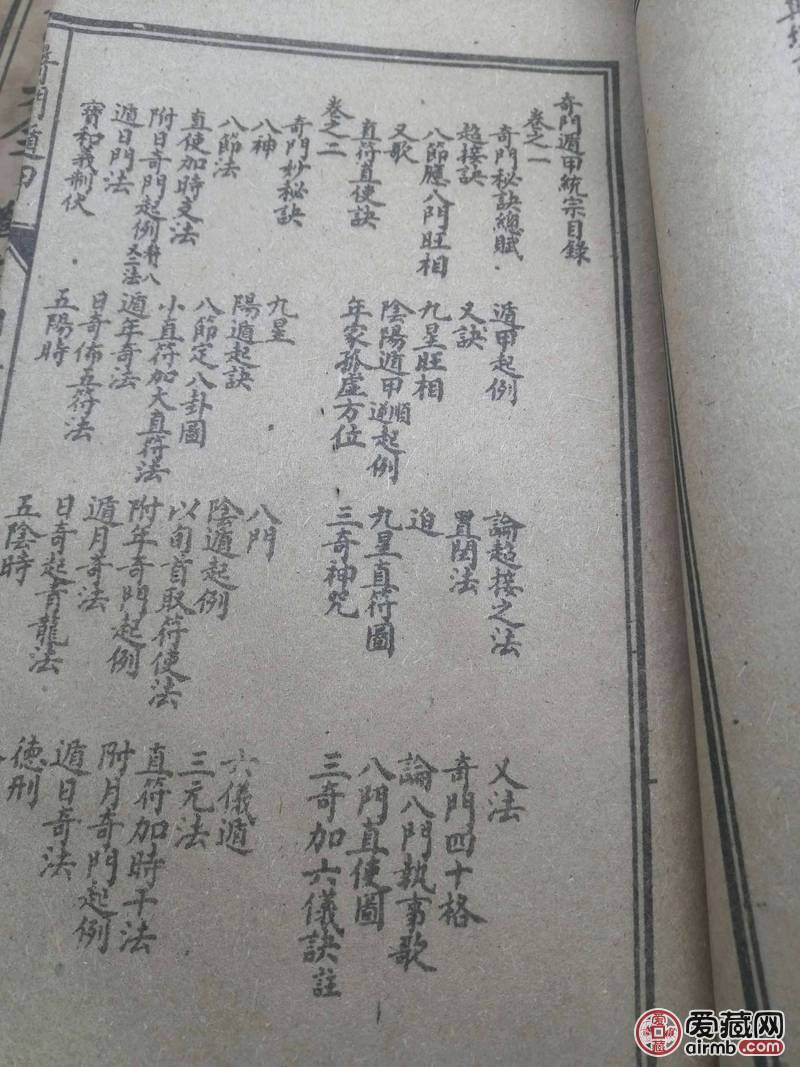 奇門遁甲統宗目錄
卷之一
奇門秘訣總賦 遁甲起例 論超接之法 又法
超接訣 又訣 置閏法 奇門四十格
八節應八門旺相 九星旺相 迫 論八門執事歌
又歌 陰陽遁甲順逆起例 九星直符圖 八門直使圖
直符直使訣 年家孤虛方位 三奇神咒 三奇加六儀訣註
卷之二
奇門妙秘訣
八神 九星 八門 六儀遁
八節法 陽遁起訣 陰遁起例 三元法
直使加時支法 八節定八卦圖 以旬首取符使法 直符加時干法
附日奇門起例 小直符加大直符法 附年奇門起例 附月奇門起例
遁日門法 遁年奇法 遁月奇法 遁日奇法
寶和義制伏 日奇佈五符法 日奇起青龍法 德刑
五陽時 五陰時
奇門遁甲
爱藏网
airmb.com